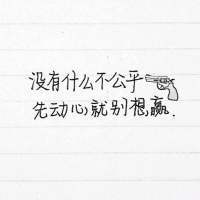 没有什么不公平
先动心,就别想,赢.